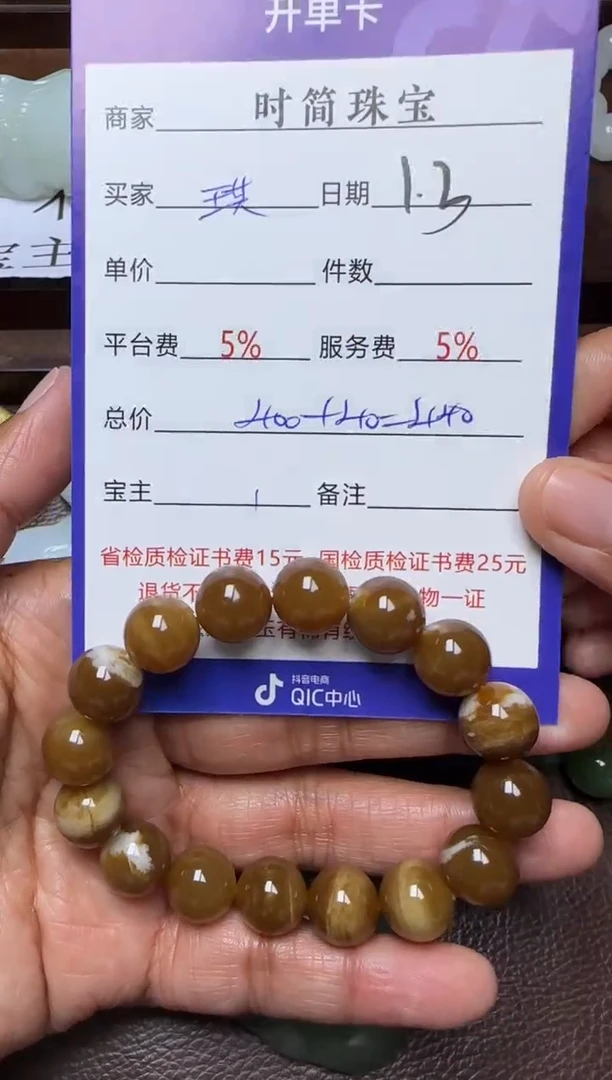 开单卡
商家 时简珠宝
买家 琪 日期 1.3
单价 件数
平台费 5% 服务费 5%
总价 400+40=440
宝主 备注
省检质检证书费15元 国检质检证书费25元
退货不 物一证
玉有
抖音电商
QIC中心
宝主